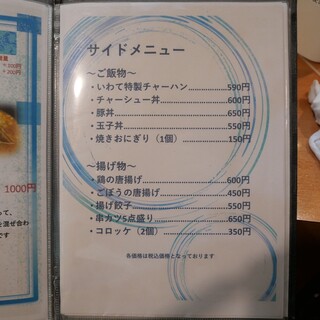 サイドメニュー
～ご飯物～
・いわて特製チャーハン..................590円
・チャーシュー丼..........................600円
・豚丼.......................................650円
・玉子丼....................................550円
・焼きおにぎり（1個）...................150円
～揚げ物～
・鶏の唐揚げ..............................600円
・ごぼうの唐揚げ.........................450円
・揚げ餃子.................................550円
・串カツ5点盛り..........................650円
・コロッケ（2個）........................350円
各価格は税込価格となっております
1000円
って、
を混ぜ合わ